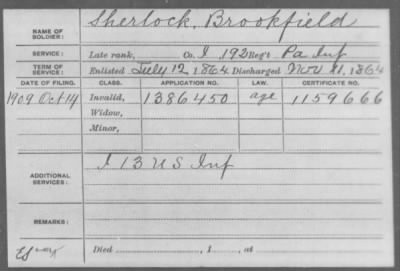 NAME OF SOLDIER: Sherlock, Brookfield
SERVICE: Late rank, Co. I 192 Reg't Pa Inf
TERM OF SERVICE: Enlisted July 12, 1864 Discharged Nov. 11, 1864
DATE OF FILING. CLASS. APPLICATION NO. LAW. CERTIFICATE NO.
1909 Oct 14 Invalid, 1386450 age 1159666
Widow,
Minor,
ADDITIONAL SERVICES: I 13 U S Inf
REMARKS:
Died , 1 , at